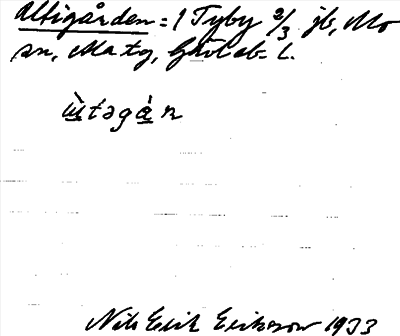 Uttigården = 1 Tyby 2/3 jb, Mo
sn, Ma tg, Gbol ab. l.
ùtəgàn
Nils Erik Eriksson 1933